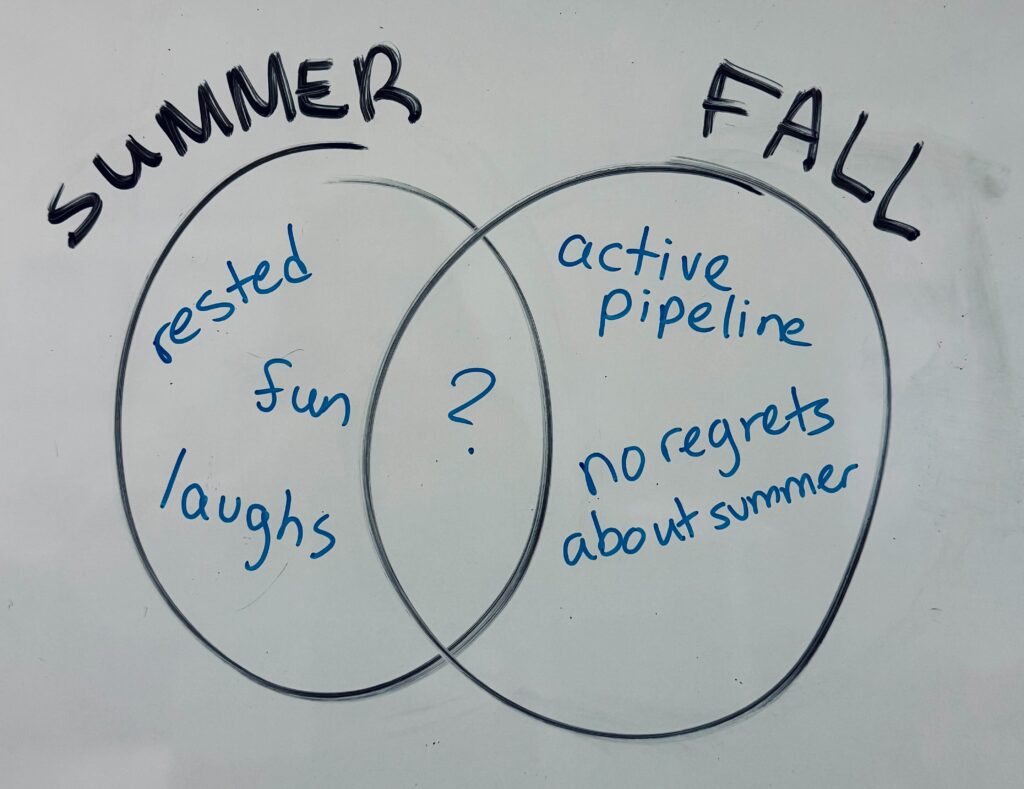 SUMMER
FALL
rested
fun
laughs
?
active
pipeline
no regrets
about summer